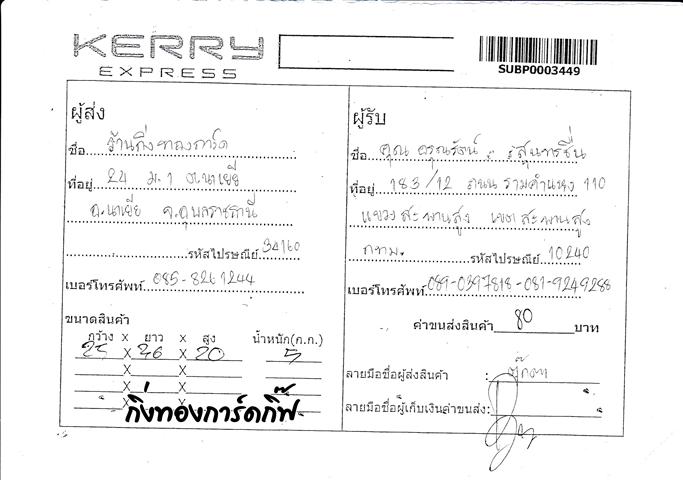 KERRY
EXPRESS
SUBP0003449
ผู้ส่ง
ชื่อ ร้านกิ่งทองการ์ด
ที่อยู่ 24 ม.1 ต.นาเยีย
อ.นาเยีย จ.อุบลราชธานี
รหัสไปรษณีย์ 34160
เบอร์โทรศัพท์ 085-8261244
ขนาดสินค้า
กว้าง x ยาว x สูง น้ำหนัก(ก.ก.)
25 x 26 x 20 5
x x
x x
x x
กิ่งทองการ์ดกิ๊ฟ
ผู้รับ
ชื่อ คุณ อรุณรัตน์
ที่อยู่ 183/12 ถนน รามคำแหง 110
แขวง สะพานสูง เขต สะพานสูง
กทม. รหัสไปรษณีย์ 10240
เบอร์โทรศัพท์ 089-0397818-081-9249288
ค่าขนส่งสินค้า 80 บาท
ลายมือชื่อผู้ส่งสินค้า : ตุ๊กตา
ลายมือชื่อผู้เก็บเงินค่าขนส่ง: